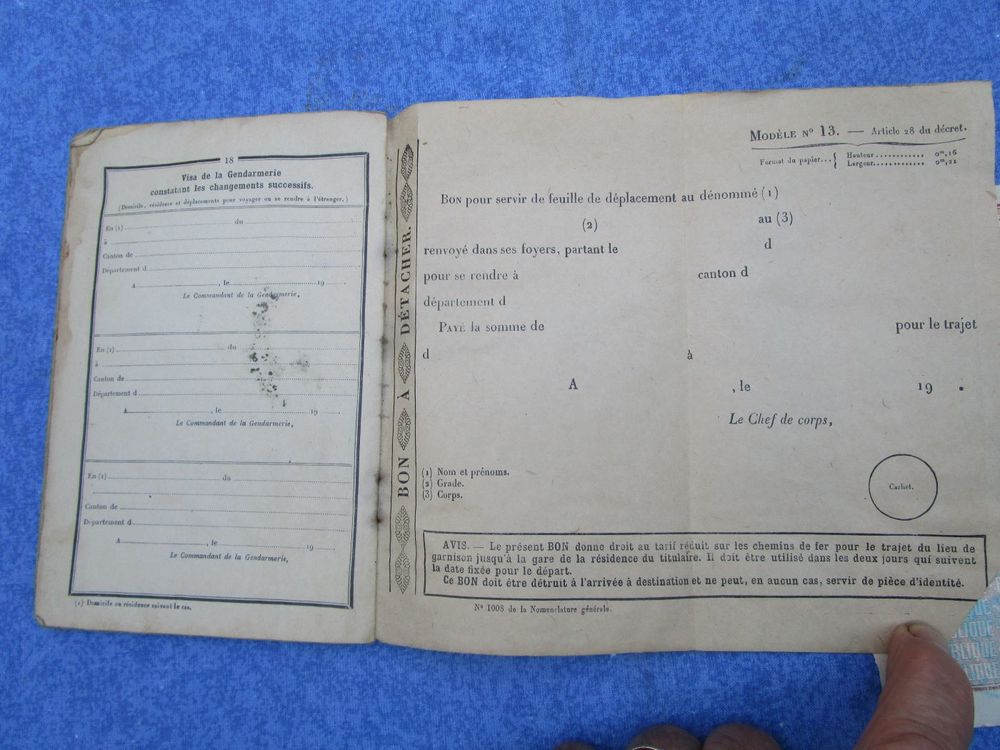 18
Visa de la Gendarmerie
constatant les changements successifs.
(Domicile, résidence et déplacements pour voyager ou se rendre à l'étranger.)
En (1) du
à
Canton de
Département d
A , le 19 .
Le Commandant de la Gendarmerie,
En (1) du
à
Canton de
Département d
A , le 19 .
Le Commandant de la Gendarmerie,
En (1) du
Canton de
Département d
A , le 19
Le Commandant de la Gendarmerie,
(1) Domicile ou résidence suivant le cas.
BON À DÉTACHER.
MODÈLE N° 13. — Article 28 du décret.
Format du papier... { Hauteur............ 0m,16
Largeur............. 0m,21
BON pour servir de feuille de déplacement au dénommé (1)
(2) au (3)
renvoyé dans ses foyers, partant le d
pour se rendre à canton d
département d
PAYÉ la somme de pour le trajet
d à
A , le 19 .
Le Chef de corps,
(1) Nom et prénoms.
(2) Grade.
(3) Corps.
Cachet.
AVIS. — Le présent BON donne droit au tarif réduit sur les chemins de fer pour le trajet du lieu de
garnison jusqu'à la gare de la résidence du titulaire. Il doit être utilisé dans les deux jours qui suivent
la date fixée pour le départ.
Ce BON doit être détruit à l'arrivée à destination et ne peut, en aucun cas, servir de pièce d'identité.
N° 1008 de la Nomenclature générale.